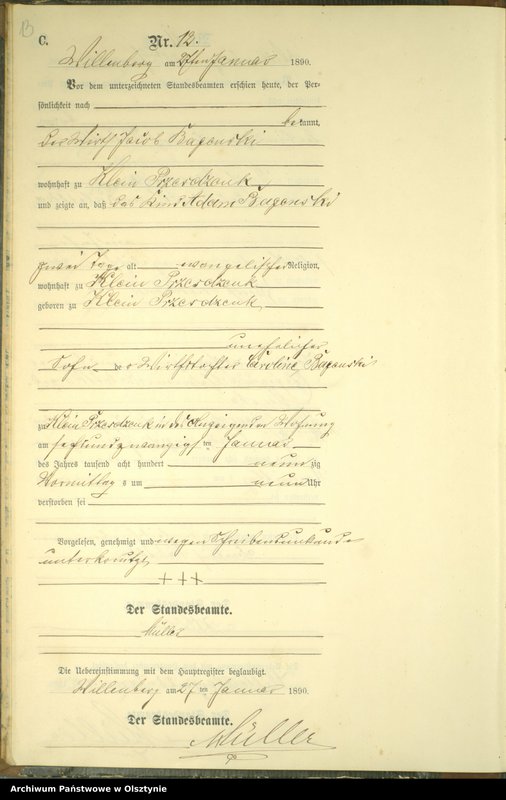 13
C.
Nr. 12.
Willenberg am 27ten Januar 1890.
Vor dem unterzeichneten Standesbeamten erschien heute, der Per-
sönlichkeit nach
bekannt,
der Wirth Jacob Bagenski
wohnhaft zu Klein Przesdzenk
und zeigte an, daß das Kind Adam Bagenski
zwei Tage alt evangelischer Religion,
wohnhaft zu Klein Przesdzenk
geboren zu Klein Przesdzenk
unehelicher
Sohn der Wirthstochter Caroline Bagenski
zu Klein Przesdzenk in des Anzeigenden Wohnung
am sechsundzwanzigsten ten Januar
des Jahres tausend acht hundert neunzig
Vormittags um neun Uhr
verstorben sei
Vorgelesen, genehmigt und wegen Schreibensunkunde
unterkreuzt
+++
Der Standesbeamte.
Müller
Die Uebereinstimmung mit dem Hauptregister beglaubigt.
Willenberg am 27 ten Januar 1890.
Der Standesbeamte.
Müller
Archiwum Państwowe w Olsztynie